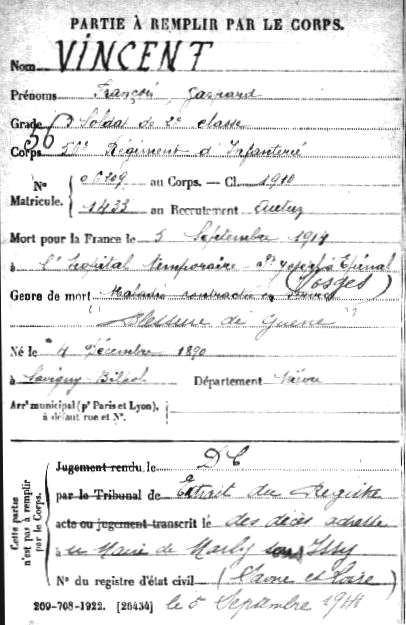 PARTIE À REMPLIR PAR LE CORPS.
Nom VINCENT
Prénoms François
Grade Soldat de 2e classe
56
Corps 56e Régiment d'Infanterie
N° Matricule. au Corps. — Cl. 1910
1433 au Recrutement
Mort pour la France le 5 Septembre 1914
à l'hôpital temporaire St Joseph à Epinal
(Vosges)
Genre de mort Maladie contractée en service
(Blessure de Guerre)
Né le 4 Décembre 1890
à Savigny Département Nièvre
Arrt municipal (pr Paris et Lyon),
à défaut rue et N°.
Cette partie
n'est pas à remplir
par le Corps.
Jugement rendu le D C
par le Tribunal de Extrait du Registre
acte ou jugement transcrit le des décès adressé
Maire de Marly sous Issy
N° du registre d'état civil (Saône et Loire)
269-708-1922. [26434] le 5 Septembre 1914